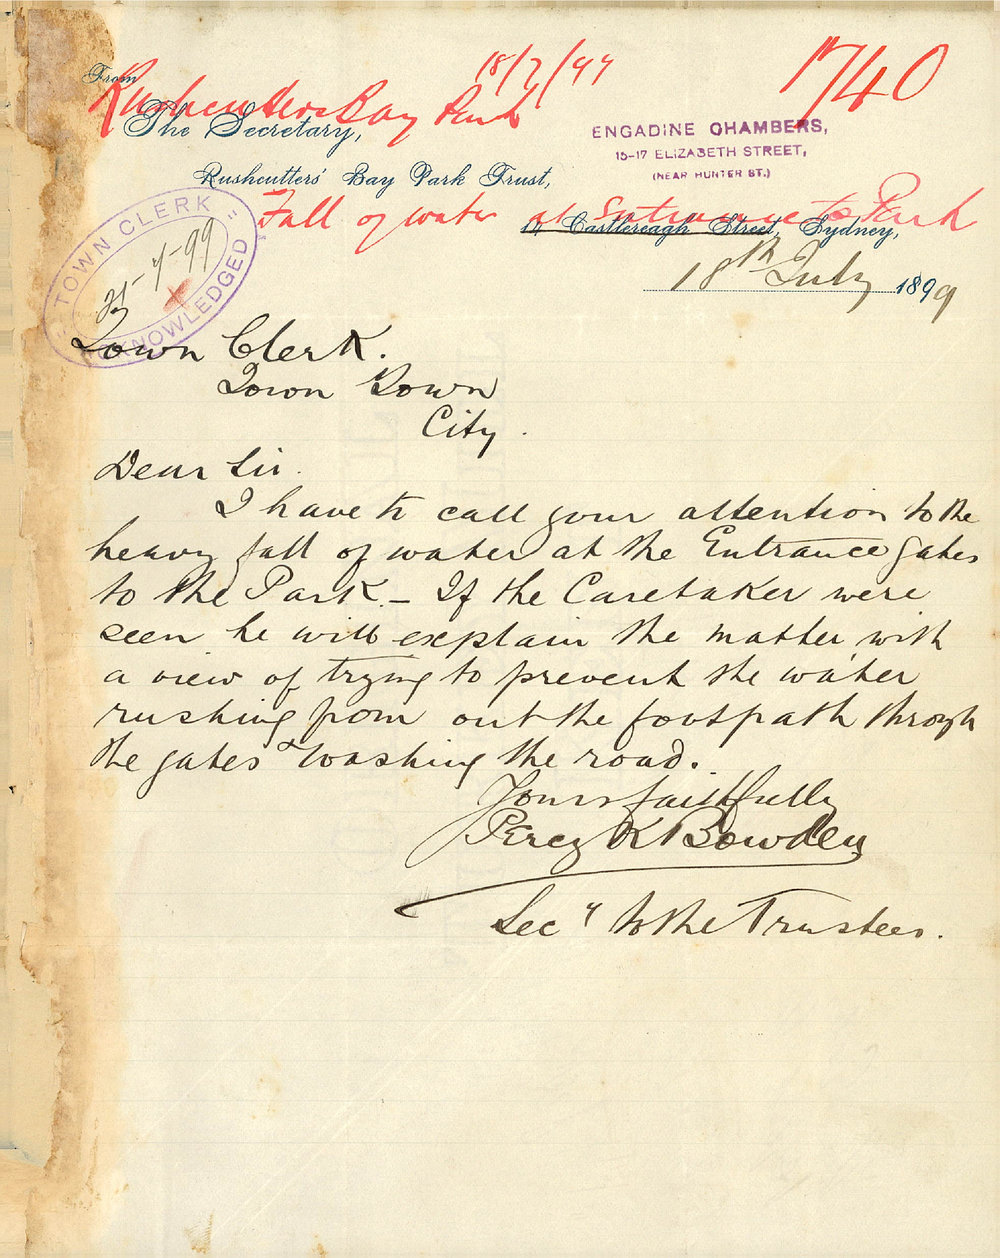 18/7/99
1740
From
Rushcutters Bay Park
The Secretary,
ENGADINE CHAMBERS,
15-17 ELIZABETH STREET,
(NEAR HUNTER ST.)
Rushcutters' Bay Park Trust,
Fall of water at Entrance to Park
14 Castlereagh Street, Sydney,
18th July 1899
TOWN CLERK
21-7-99
ACKNOWLEDGED
Town Clerk.
Town Town
City.
Dear Sir.
I have to call your attention to the
heavy fall of water at the Entrance gates
to the Park. - If the Caretaker were
seen he will explain the matter with
a view of trying to prevent the water
rushing from out the footpath through
the gates & washing the road.
Yours faithfully
Percy K Bowden
Secy to the Trustees.